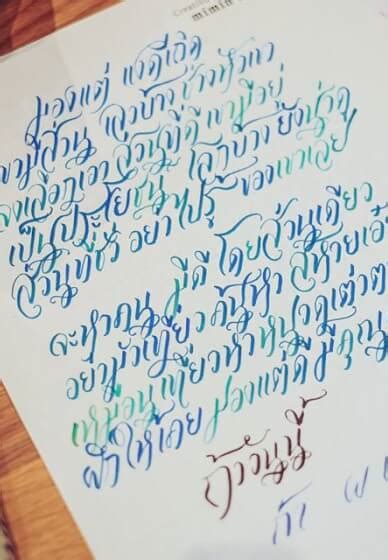 Creativ
mimin
มองแต่ แง่ดีเถิด
ขามีส่วน เลวบ้าง ช่างหัวเขา
จงเลือกเอา ส่วนที่ดี เขามีอยู่
เป็นประโยชน์ โลกบ้าง ยังน่าดู
ส่วนที่ชั่ว อย่าไปรู้ ของเขาเลย
จะหาคน มีดี โดยส่วนเดียว
อย่ามัวเที่ยว ค้นหา สหายเอ๋
เหมือนเที่ยวหา หนวดเต่าตา
ฝึกให้เคย มองแต่ดี มีคุณ
ถ้าวันนี้